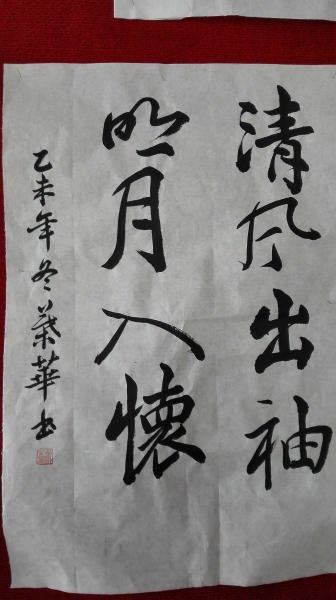 清风出袖
明月入懷
乙未年冬葉華书